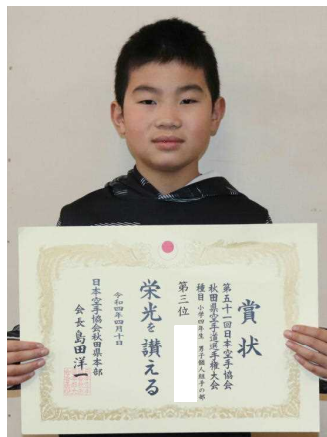 賞状
第五十一回日本空手協会
秋田県空手道選手権大会
種目 小学四年生 男子個人組手の部
第三位
栄光を讃える
令和四年四月十日
日本空手協会秋田県本部
会長 島田洋一